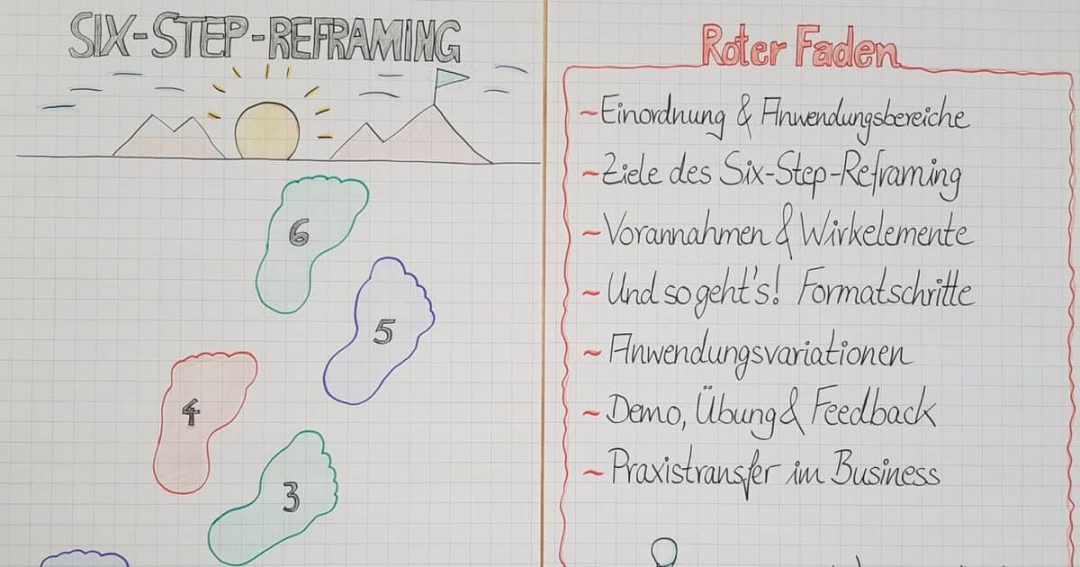 SIX-STEP-REFRAMING
6
5
4
3
Roter Faden
~Einordnung & Anwendungsbereiche
~Ziele des Six-Step-Reframing
~Vorannahmen & Wirkelemente
~Und so geht's! Formatschritte
~Anwendungsvariationen
~Demo, Übung & Feedback
~Praxistransfer im Business